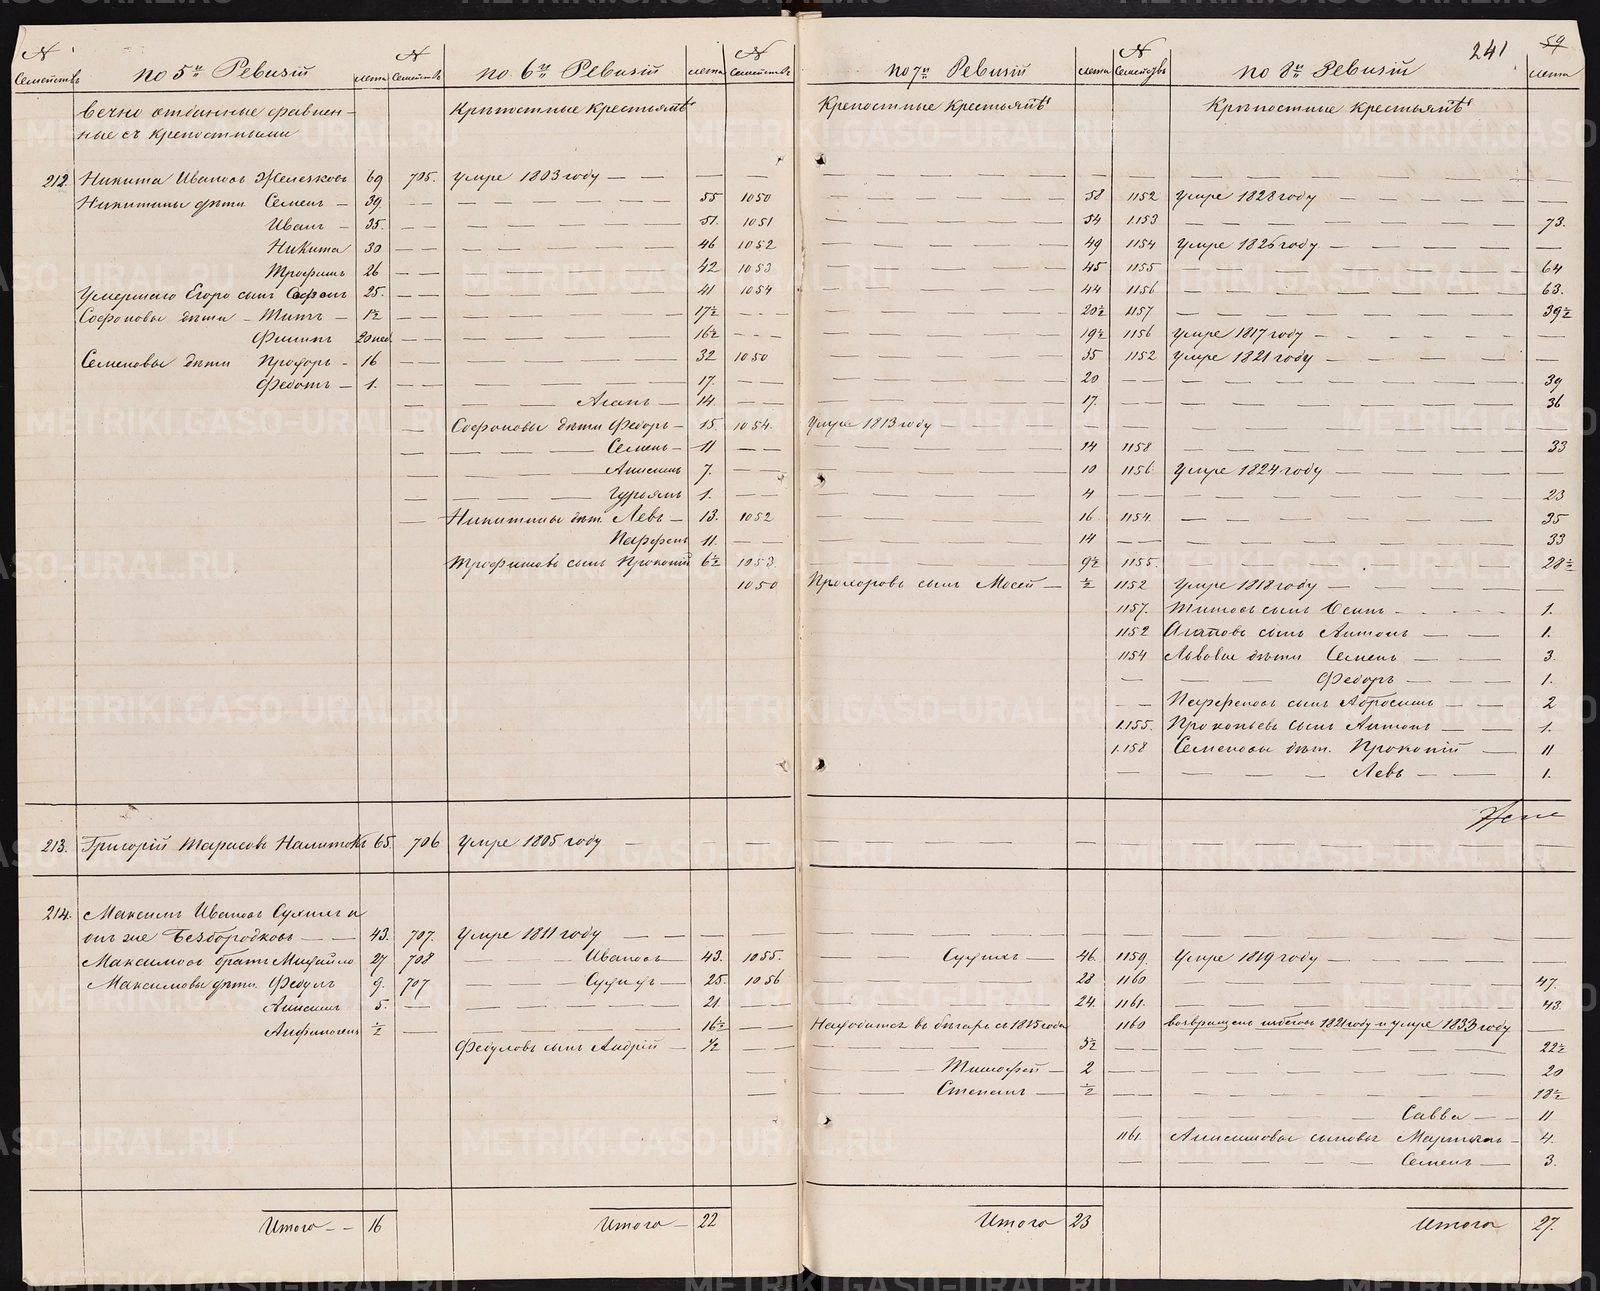 241 59
№ Семействъ по 5й Ревизіи лета № Семействъ по 6й Ревизіи лета № Семействъ по 7й Ревизіи лета № Семействъ по 8й Ревизіи лета
вечно отданные Крѣпостные Крестьянѣ Крепостные Крестьянѣ Крѣпостные Крестьянѣ
ные съ крепостными
212. Никита Ивановъ Железковъ 69 705. умре 1803 году
Никитины дѣти Семенъ 39. 55 1050 58 1152 умре 1828 году
Иванъ 35. 51. 1051 54 1153 73.
Никита 30 46 1052 49 1154 умре 1826 году
Трофимъ 26 42 1053 45 1155 64
Умершаго Егоро сынъ Софонъ 25. 41 1054 44 1156 63.
Софоновы дѣти Титъ 1½ 17½ 20½ 1157 39½
Филипъ 20 нед. 16½ 19½ 1156 умре 1817 году
Семеновы дѣти Прохоръ 16 32 1050 35 1152 умре 1821 году
Федотъ 1. 17. 20 39
Агапъ 14. 17. 36
Софоновы дѣти Федоръ 15. 1054. умре 1813 году
Семенъ 11 14 1158 33
Анисимъ 7. 10 1156 умре 1824 году
Гурьянъ 1. 4 23
Никитины дѣт. Левъ 13. 1052 16 1154. 35
Парфенъ 11. 14 33
Трофимовъ сынъ Прокопій 6½ 1053 9½ 1155. 28½
1050 Прохоровъ сынъ Мосей ½ 1152 умре 1818 году
1157. Титовъ сынъ Осипъ 1.
1152 Агаповъ сынъ Антонъ 1.
1154 Львовы дѣти Семенъ 3.
Федоръ 1.
Парфеновъ сынъ Абросимъ 2
1.155. Прокопьевъ сынъ Антонъ 1.
1.158 Семеновы дѣт. Прокопій 11
Левъ 1.
213. Григорій Тарасовъ 65. 706 умре 1805 году
214. Максимъ Ивановъ Сухихъ и
онъ же Безбородковъ 43. 707. умре 1811 году
Максимовъ братъ Михайло 27 708 Ивановъ 43. 1055. Сухихъ 46. 1159. умре 1819 году
Максимовы дѣти Федулъ 9. 707 Сухихъ 25. 1056 28 1160 47.
Анисимъ 5. 21 24. 1161. 43.
Анфиногенъ ½ 16½ Находится въ бѣгахъ с 1815 года 1160 возвращенъ избеговъ 1821 году и умре 1833 году
Федуловъ сынъ Андрій ½ 3½ 22½
Тимофей 2 20
Степанъ ½ 18½
Савва 11
1161. Анисимовы сыновья Мартынъ 4.
Семенъ 3.
Итого 16 Итого 22 Итого 23 Итого 27.
METRIKI.GASO-URAL.RU